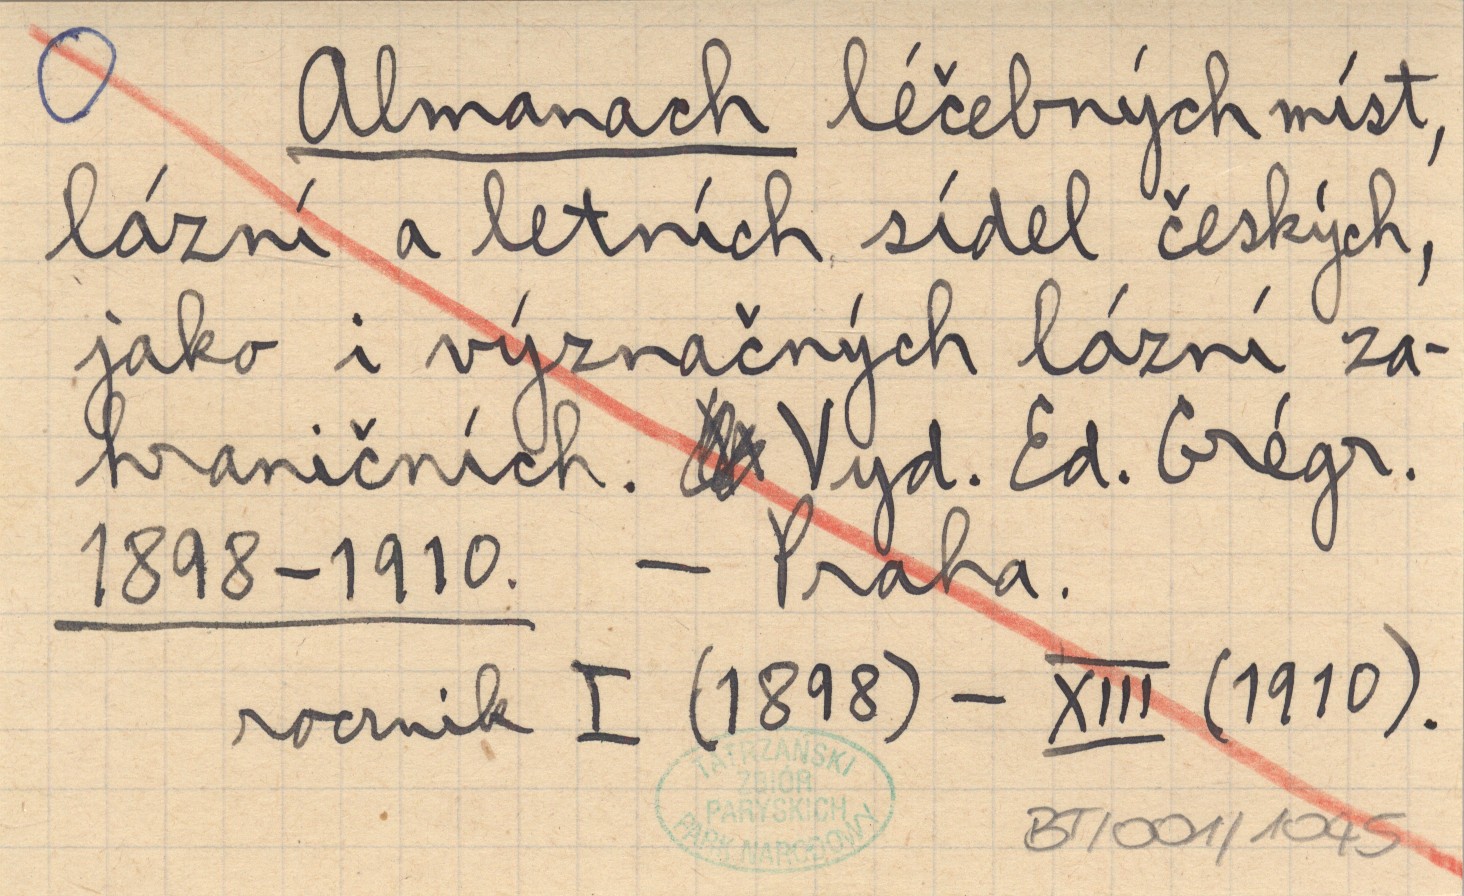 Almanach léčebných míst,
lázní a letních sídel českých,
jako i význačných lázní za-
hraničních. Vyd. Ed. Grégr.
1898-1910. — Praha.
rocznik I (1898) — XIII (1910).
TATRZAŃSKI
ZBIÓR
PARYSKICH
PARK NARODOWY
BT/001/1045